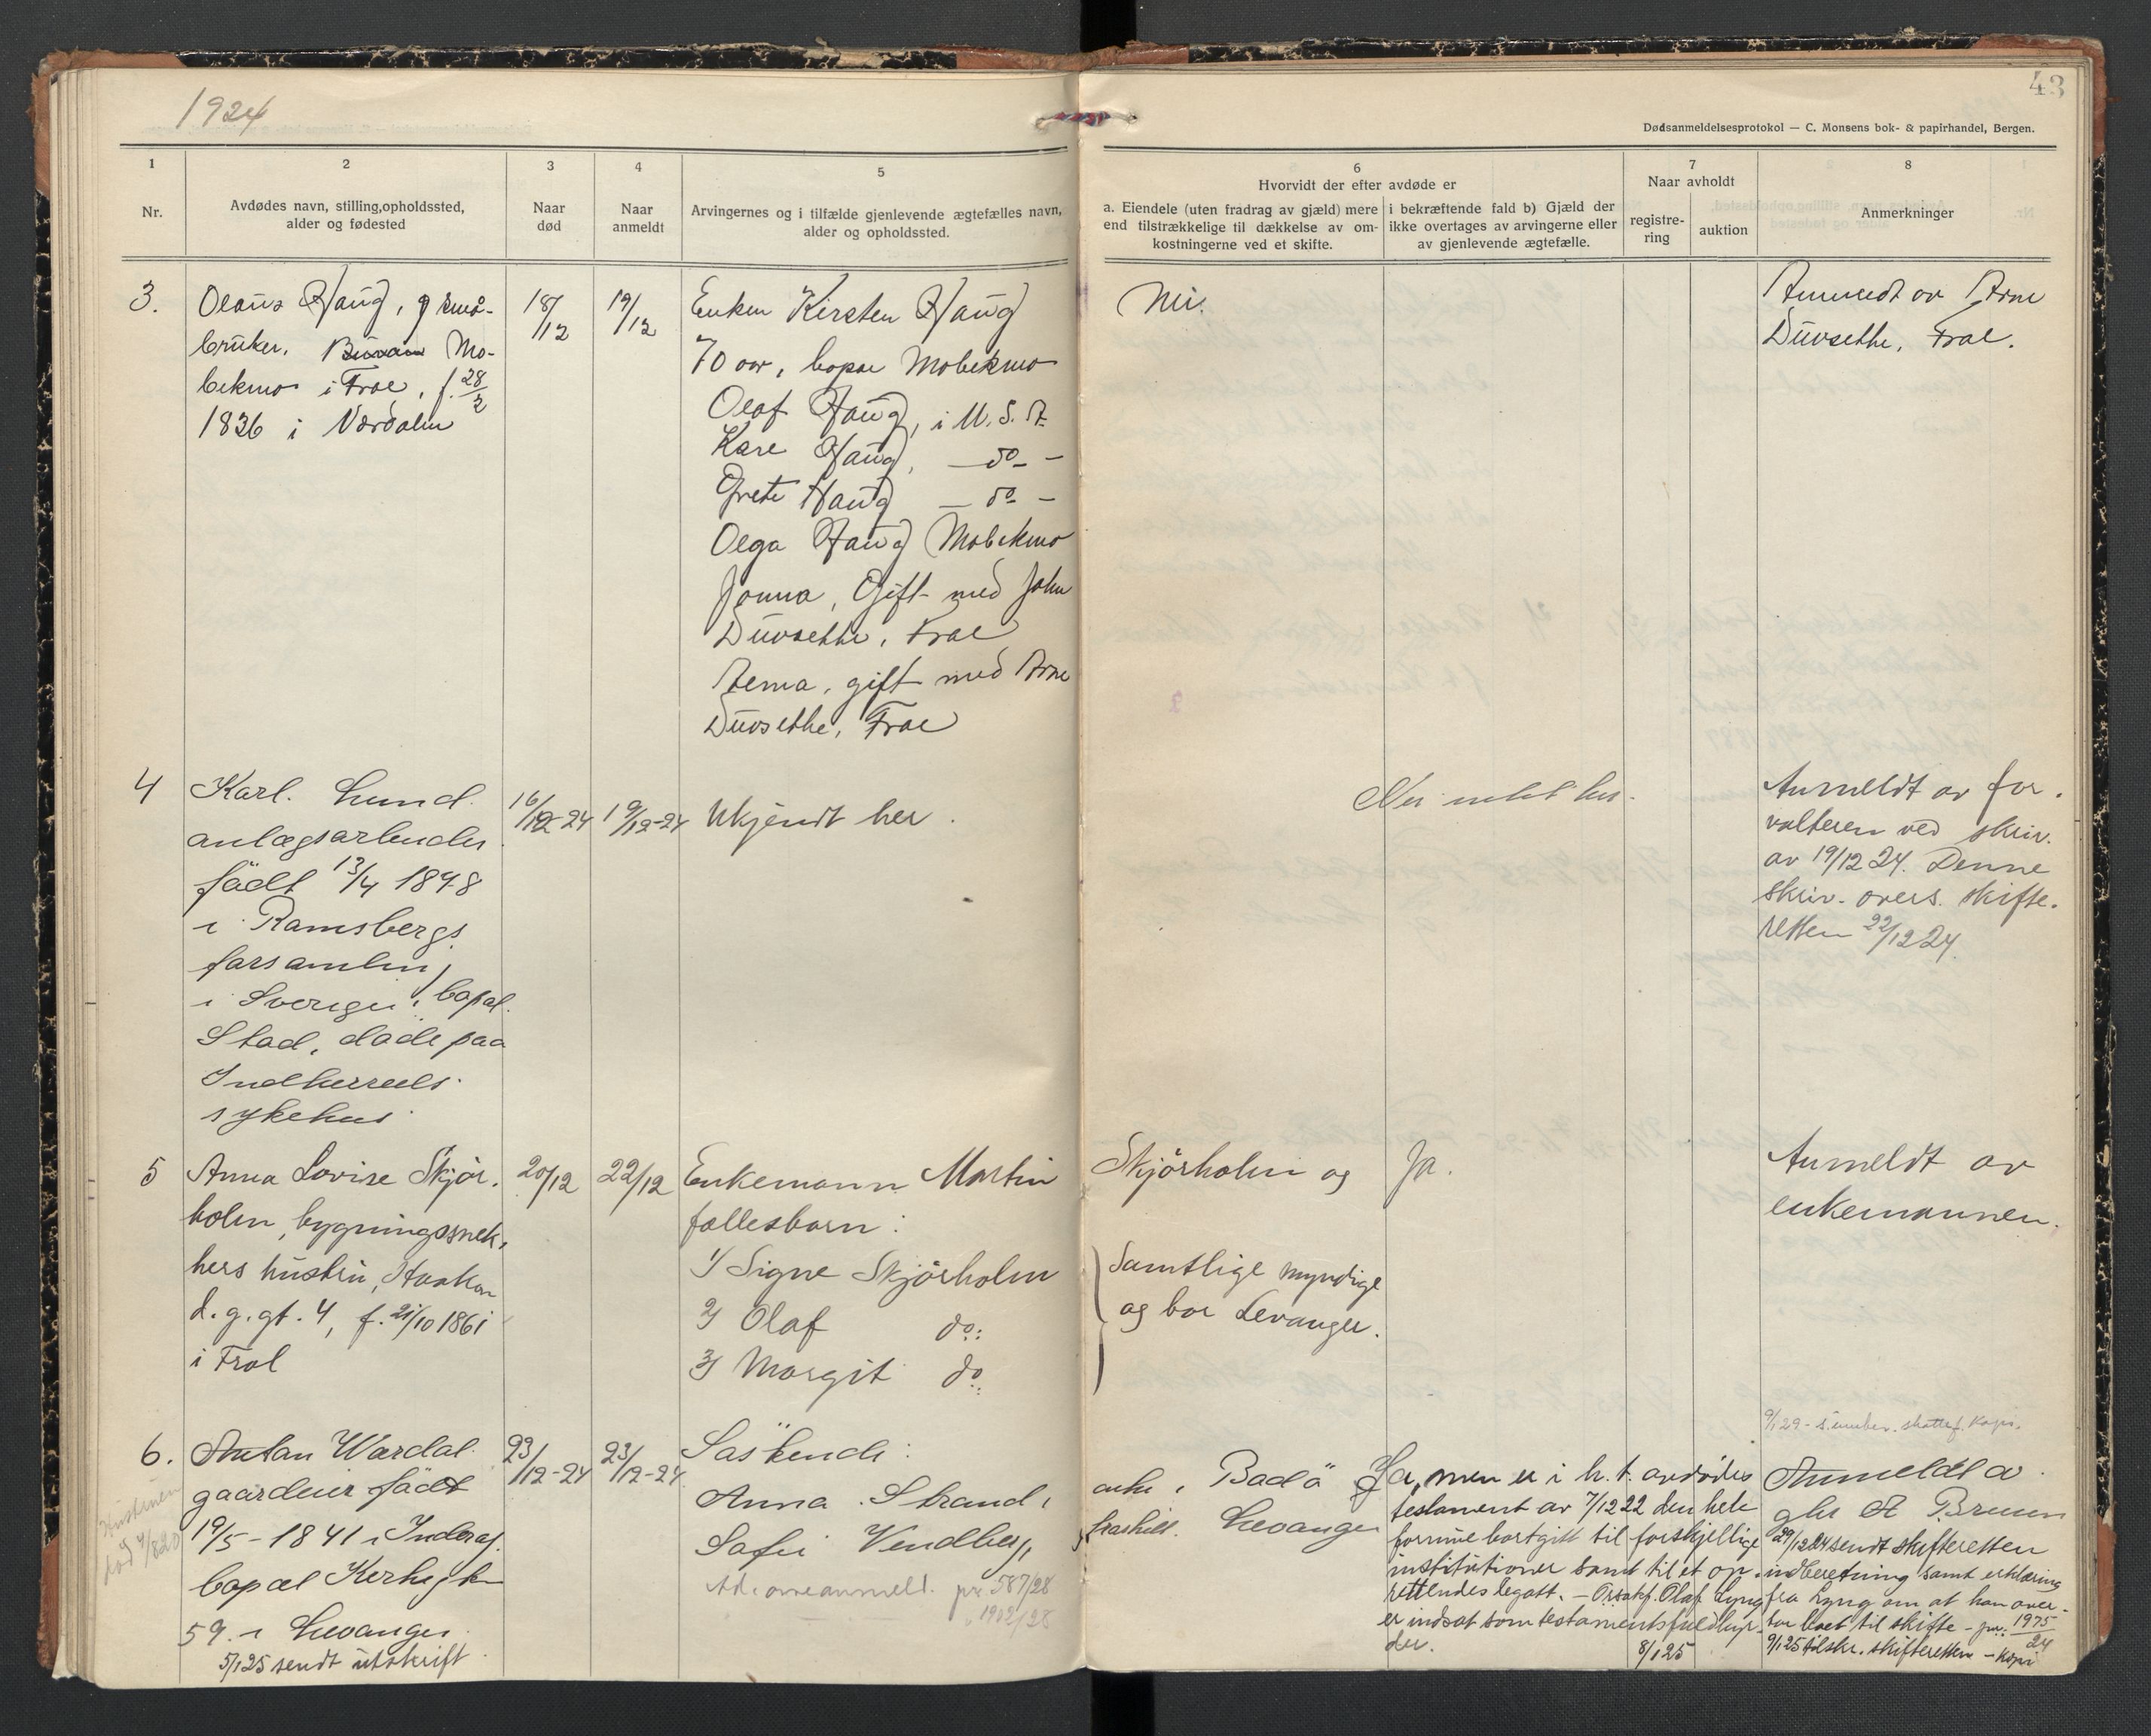 1924
43
Dødsanmeldelsesprotokol — C. Monsens bok- & papirhandel, Bergen.
1
2
3
4
5
6
7
8
Nr.
Avdødes navn, stilling, opholdssted,
alder og fødested
Naar
død
Naar
anmeldt
Arvingernes og i tilfælde gjenlevende ægtefælles navn,
alder og opholdssted.
Hvorvidt der efter avdøde er
a. Eiendele (uten fradrag av gjæld) mere
end tilstrækkelige til dækkelse av om-
kostningerne ved et skifte.
i bekræftende fald b) Gjæld der
ikke overtages av arvingerne eller
av gjenlevende ægtefælle.
Naar avholdt
registre-
ring
auktion
Anmerkninger
3.
Olaus Haug, g små-
bruker, Mo-
bekmo i Frol, f. 28/2
1836 i Værdalen
18/12
19/12
Enken Kirsten Haug
70 aar, bopæl Mobekmo
Olaf Haug, i U.S.A.
Kare Haug, — do —
Grete Haug — do —
Olga Haug Mobekmo
Jonna, Gift med John
Duvsethe, Frol
Aema, gift med Arne
Duvsethe, Frol
Nei.
Anmeldt av Arne
Duvsethe, Frol.
4
Karl. Lund.
anlægsarbeider
födt 13/4 1898
i Ramsbergs
forsamling
i Sverige, bopæl.
Stad, döde paa
Indherreds
sykehus
16/12-24
19/12-24
Ukjendt her.
Nei intet her.
Anmeldt av for-
valteren ved skriv.
av 19/12 24. Denne
skriv. overs. skifte-
retten 22/12 24.
5
Anna Lovise Skjör-
holm, bygningssnek-
kers hustru, Haakon
d. g. gt. 4, f. 21/10 1861
i Frol
20/12
22/12
Enkemann Martin Skjörholm og
fællesbarn:
1/ Signe Skjörholm
2/ Olaf do:
3/ Margit do:
Samtlige myndige
og bor Levanger.
Ja.
Anmeldt av
enkemannen.
6.
Anton Wærdal
gaardeier födt
19/5 - 1841 i Inderøy.
bopæl Kirkegt.
59. i Levanger.
5/1 25 sendt utskrift
23/12-24
23/12-24
Söskende:
Anna Strand, enke, Bodö
Sofie Vendberg, fraskilt. Levanger
587/28
1902/28
Ja, men er i h. t. avdødes
testament av 7/12 22 den hele
formue bortgit til forskjellige
institutioner samt til et op-
rettendes legatt. — Orsakf. Olaf Lyng
er indsat som testamentsfuldbyr-
der.
8/1 25
9/1 29 - skattef. Kopi.
Anmeldt av
A Bruun
29/12 24 sendt skifteretten
indberetning samt erklæring
fra Lyng om at han over-
tar boet til skifte - jnr. 1975/24
9/1 25 tilskr. skifteretten - Kopi